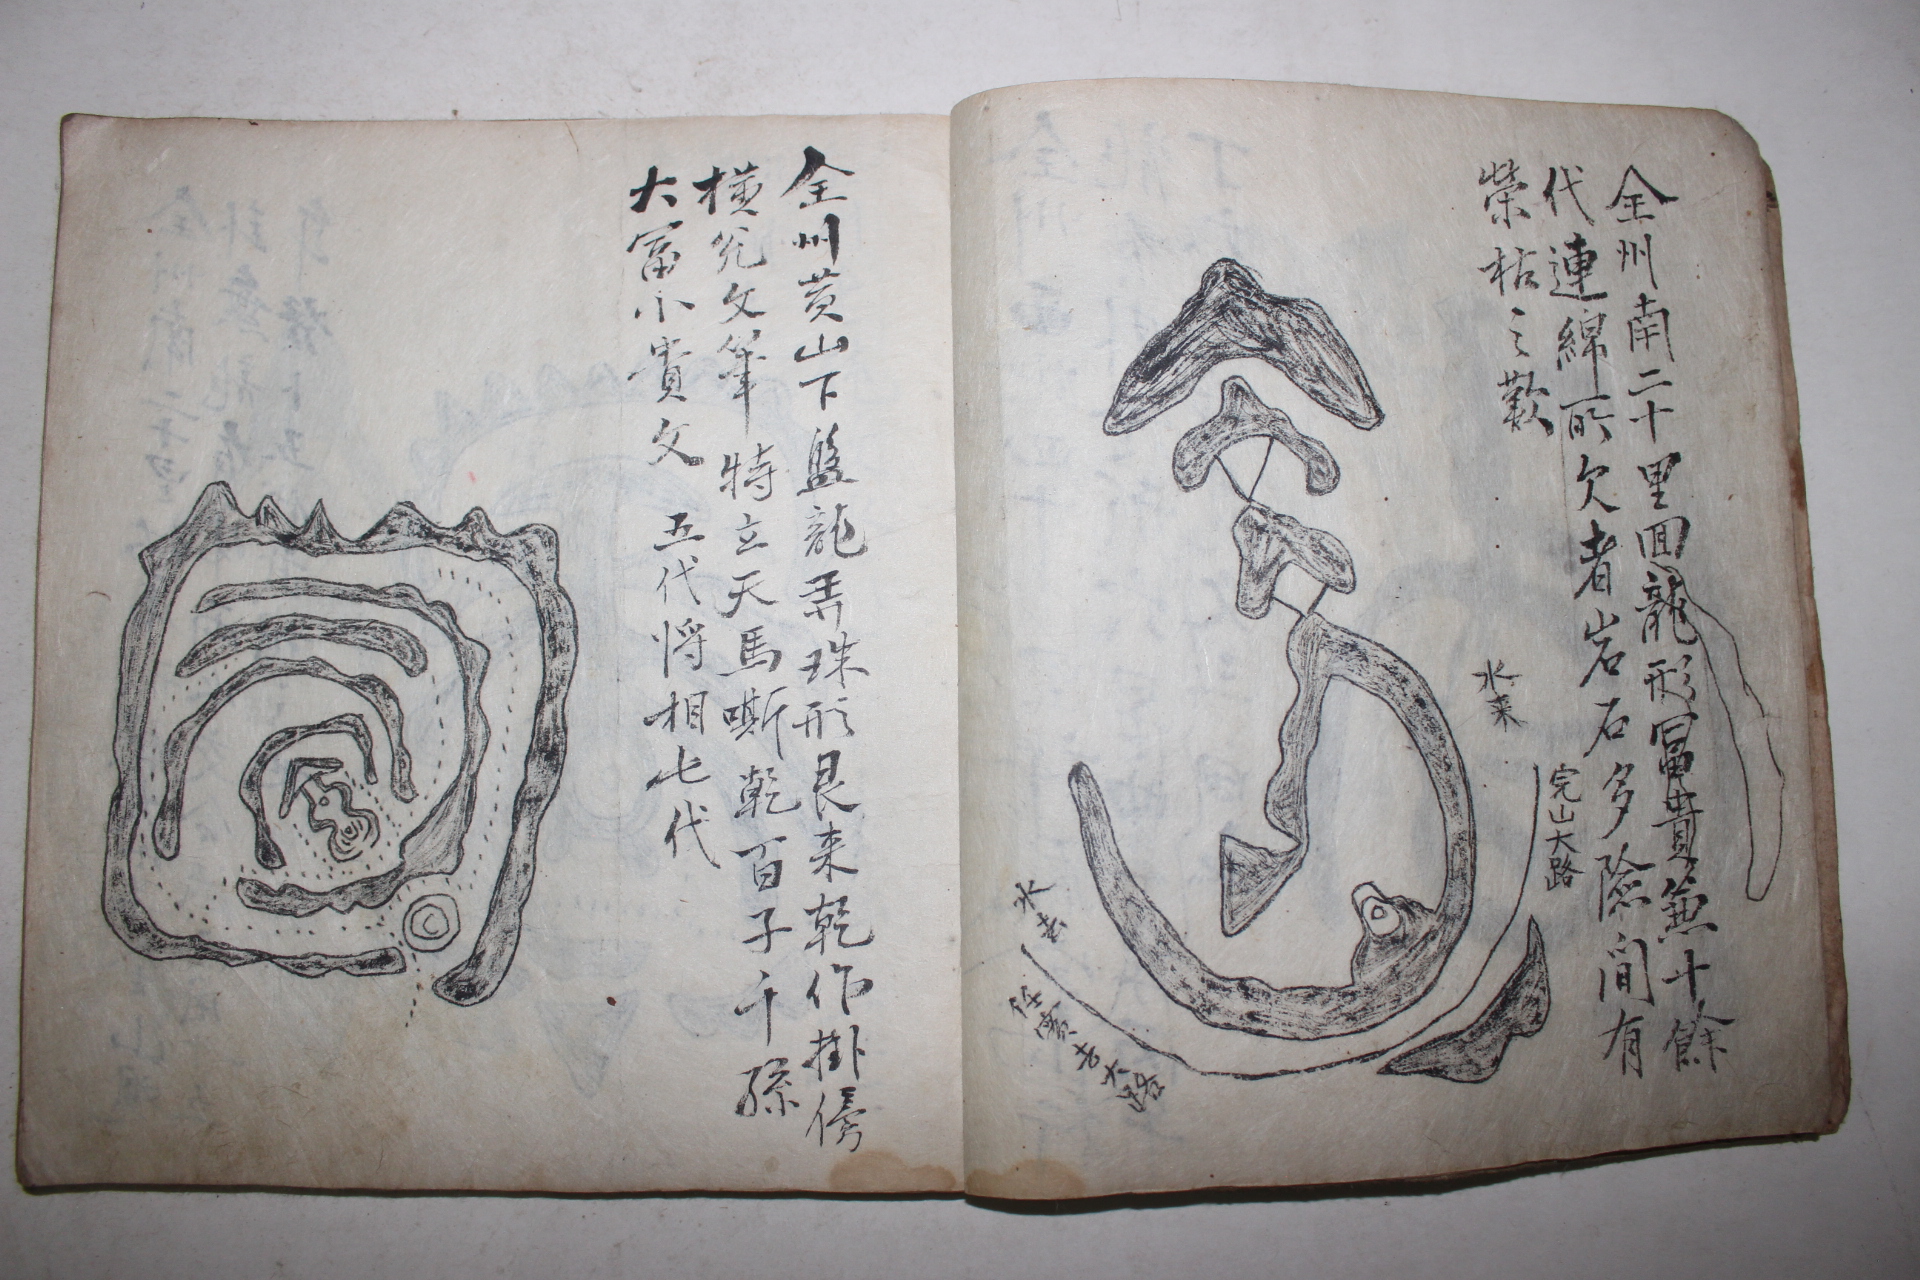 全州南二十里回龍形冨貴兼十餘
代連綿所欠者岩石多險間有
榮枯之歎
水来
完山大路
水去
任實去大路
全州黄山下盤龍弄珠形艮来乾作掛傍
横兊文筆特立天馬嘶乾百子千孫
大富小貴文 五代将相七代